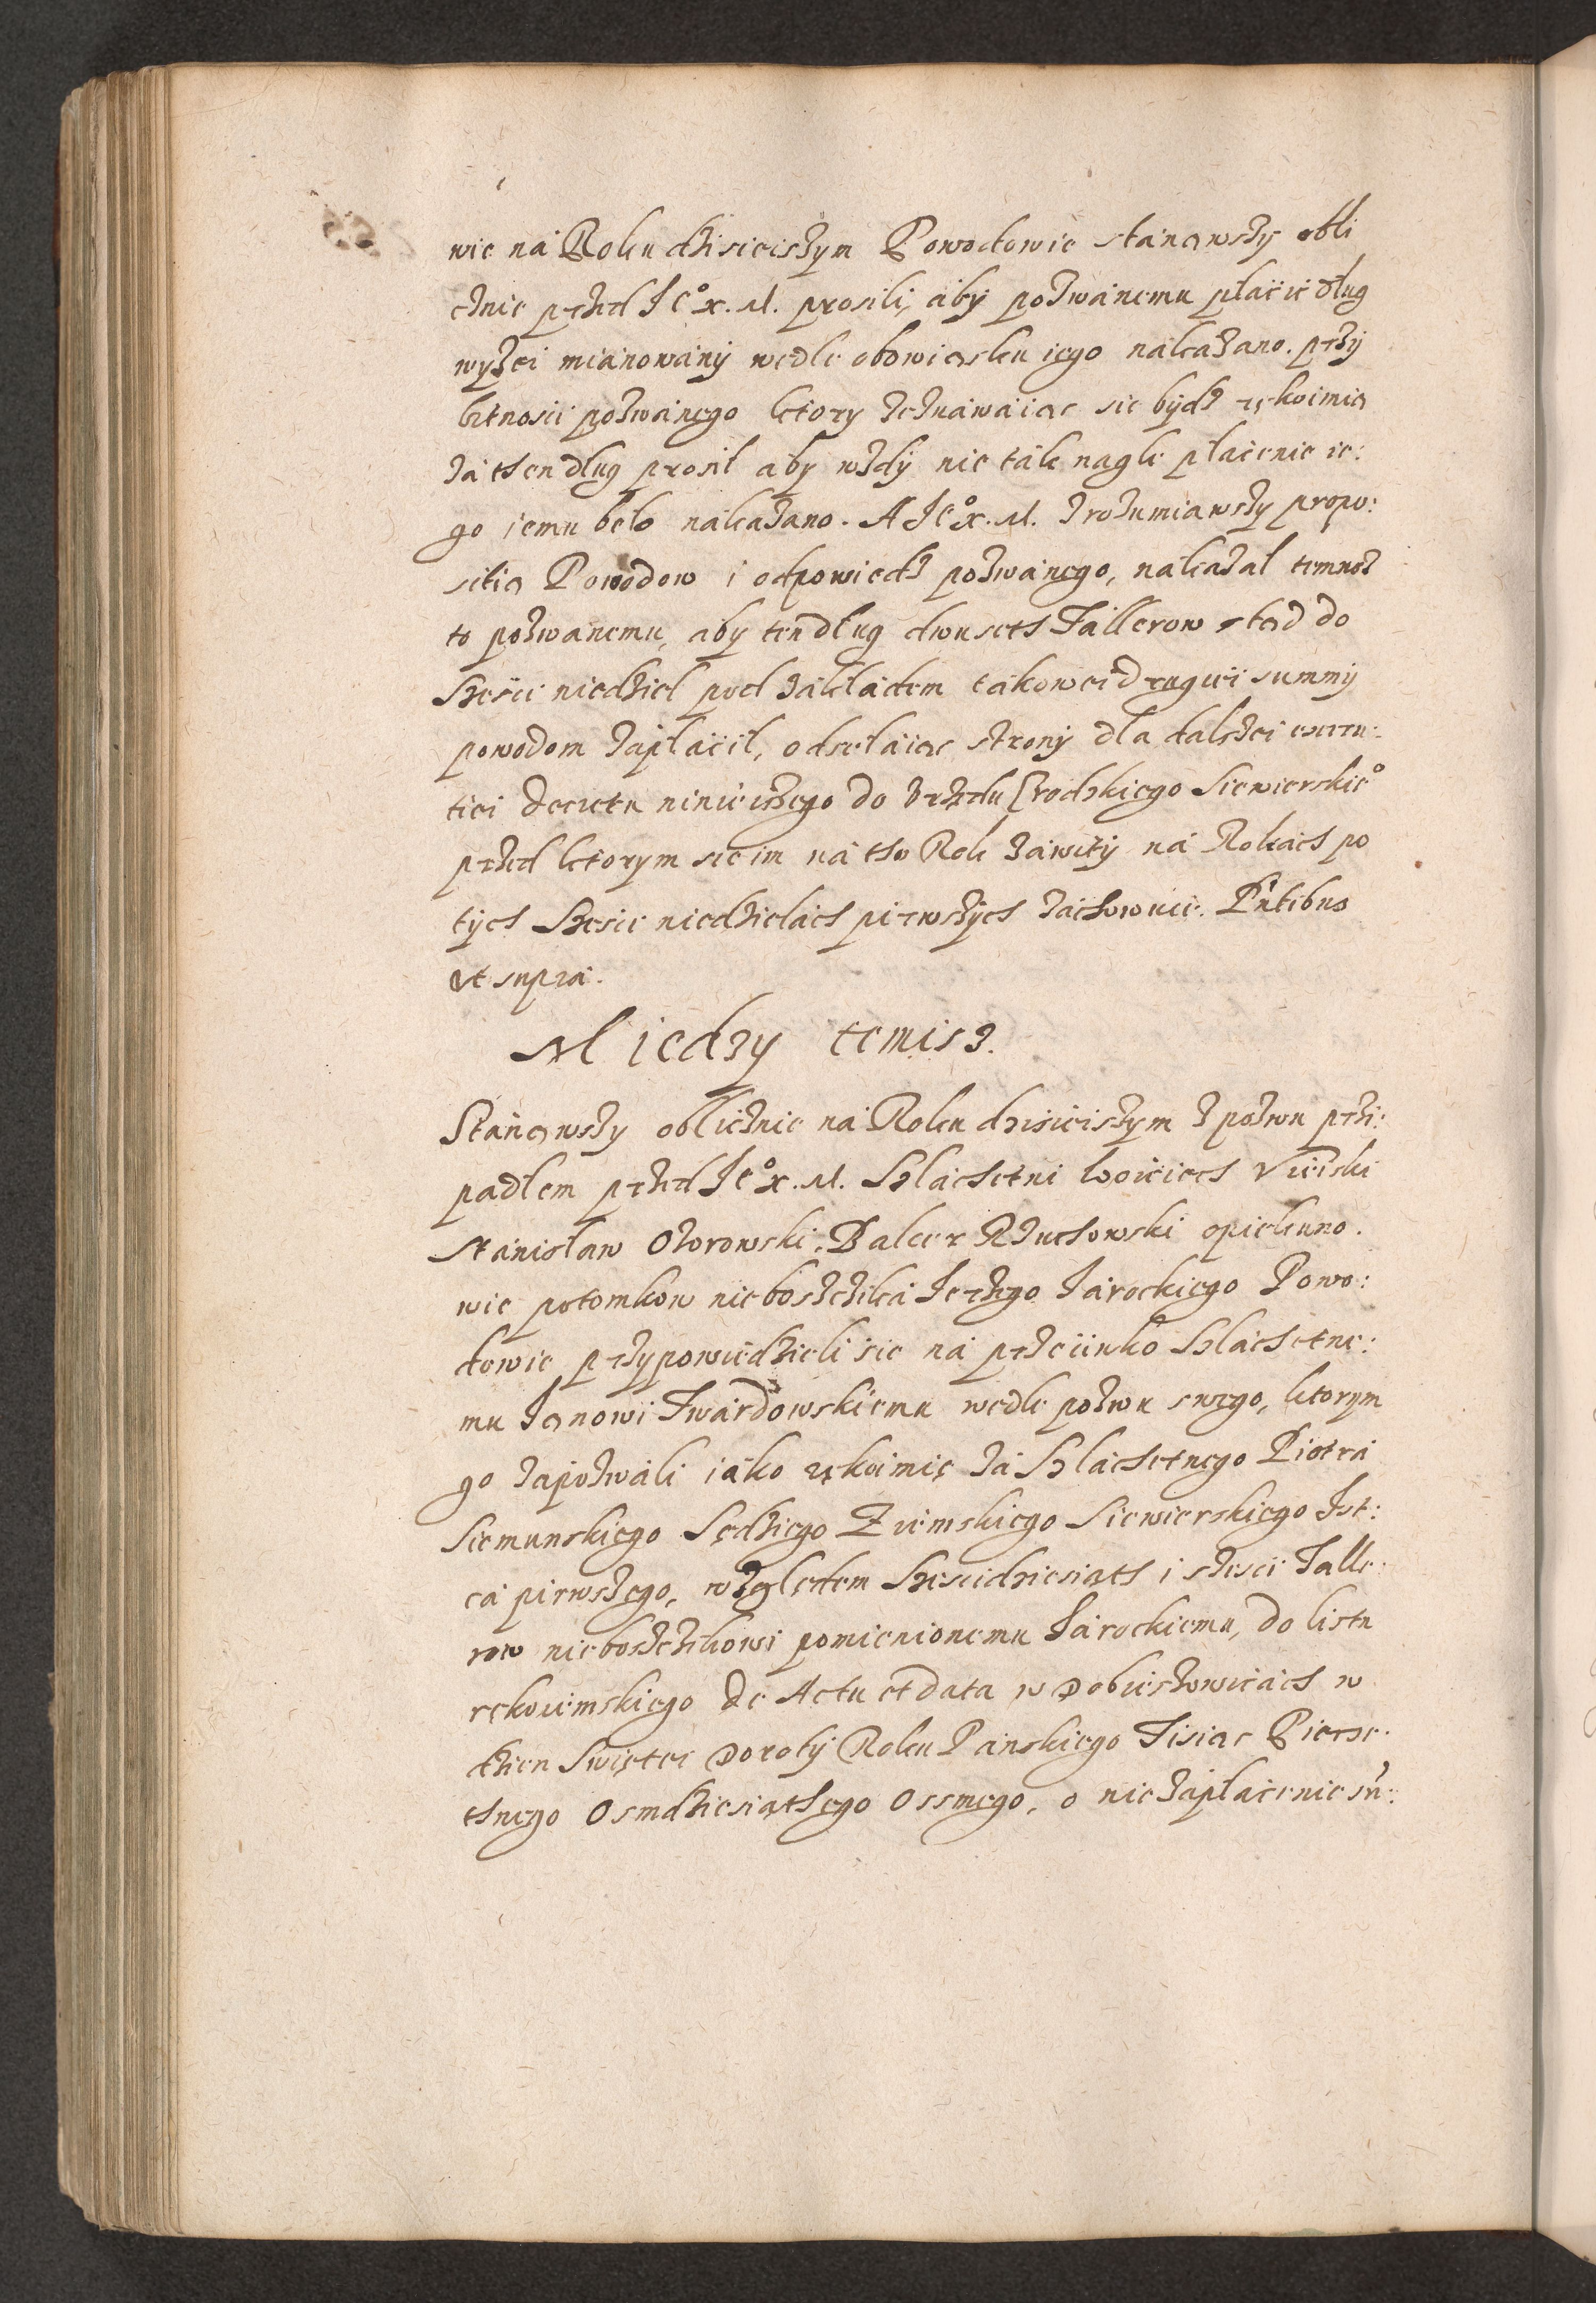 wie na Roku dzisieiszym Powodowie stanąwszy obli
cznie przed Je° x. M. prosili, aby pozwanemu płacić dług
wyżei mianowany wedle obowiąsku iego nakazano. przy
bitnosci pozwanego ktory zeznawaiąc sie bydz rękoimią
za then dług prosił aby wżdy nie tak nagle płacenie ie:
go iemu beło nakazano. A Je° x. M. zrozumiawszy propo:
sitią Powodow i odpowiedz pozwanego, nakazał temuż
to pozwanemu, aby ten dług dwuseth Tallerow stąd do
Szesci niedziel pod zakładem takowei drugiei summy
powodom zapłacił, odsełaiąc strony dla dalszei exequ:
tiei decretu ninieiszego do Vrzędu Grodzkiego Siewierskie°
przed ktorym sie im na tho Rok zawity na Rokach po
tych Szesci niedzielach pirwszych zachowuie. Pntibus
vt supra.
Miedzy temisz.
Stanąwszy oblicznie na Roku dzisieiszym z pozwu przi:
padłem przed Je° x. M. Szlachetni Woiciech Vieiski
Stanisław Ożorowski, Balcer Rzuchowski opiekuno.
wie potomkow nieboszczika Jerzego Jarockiego Powo:
dowie przypowiedzieli sie na przeciwko Szlachetne:
mu Janowi Twardowskiemu wedle pozwu swego, ktorym
go zapozwali iako rękoimię za Szlachetnego Piotra
Siemunskiego Sędziego Ziemskiego Siewierskiego Ist:
ca pirwszego, względem Szescidziesiąth i szesci Talle
row nieboszczikowi pomienionemu Jarockiemu, do listu
rękoiemskiego de Actu et data w Dobieszowicach w
dzien Swiętei Doroty Roku Panskiego Tisiąc Pięcse.
thnego Osmdziesiąthego Ossmego, o nie zapłacenie sū: